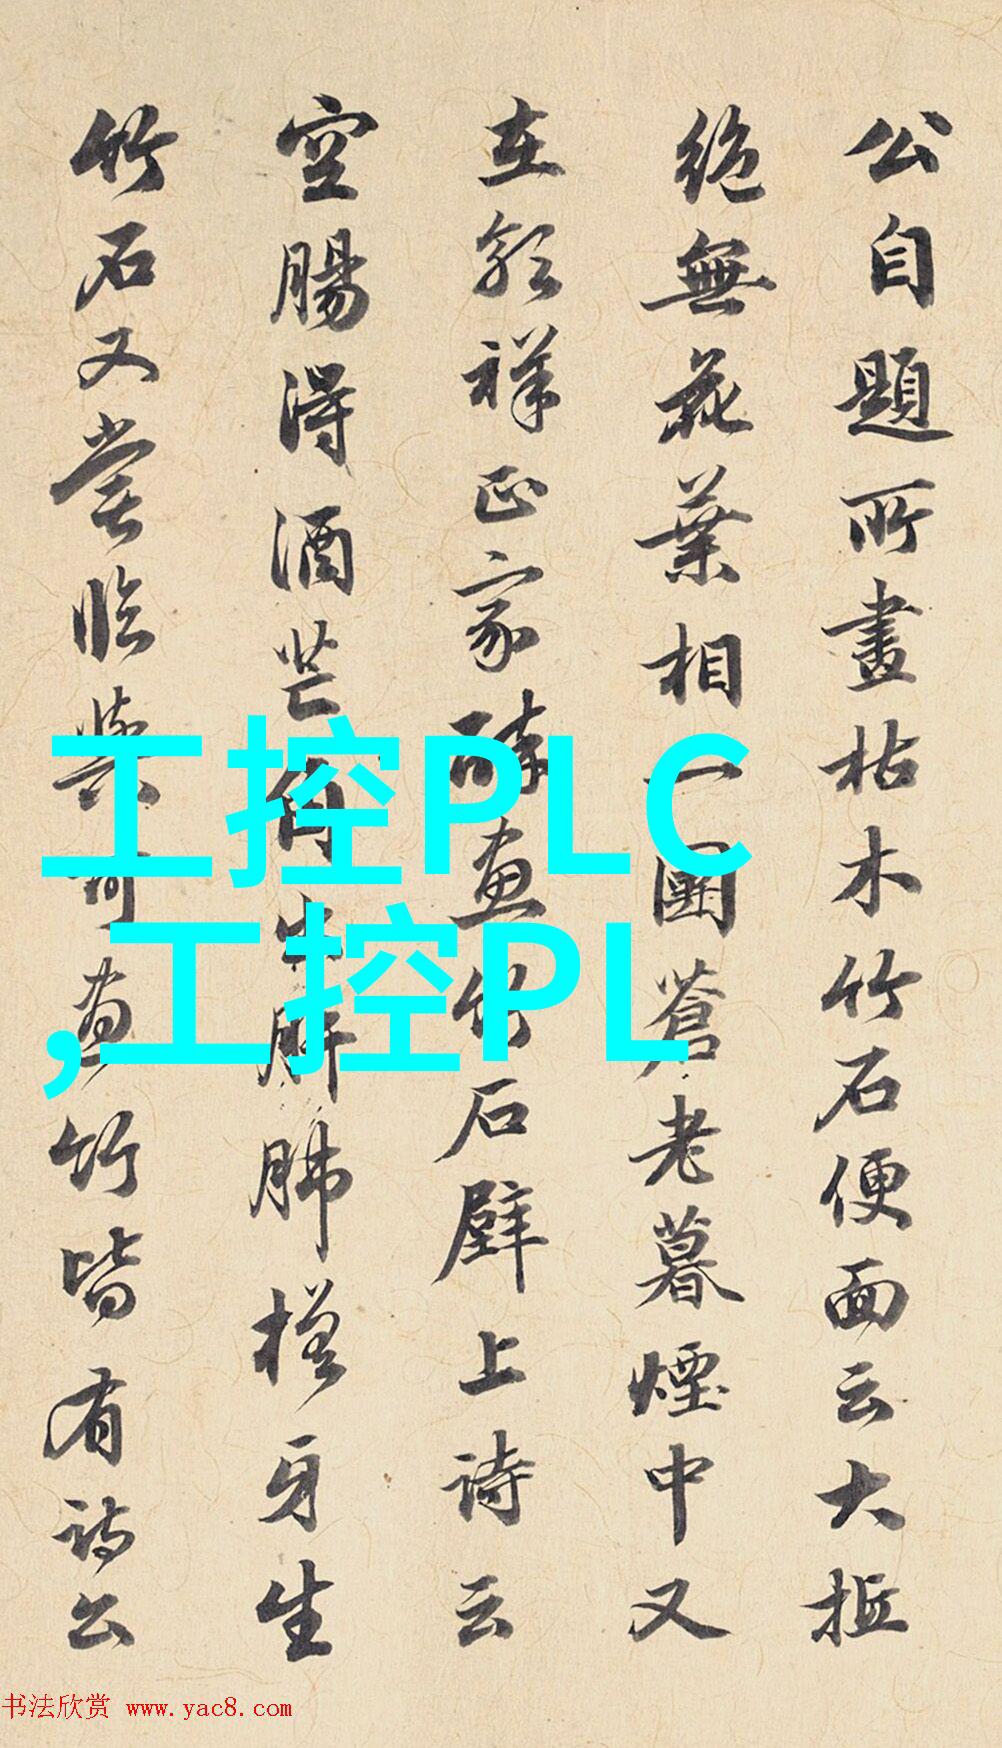 公自題所畫枯木竹石便面云大抵
絶無花葉相一團蒼老暮煙中又
在郭祥正家醉画竹石壁上詩云
空腸得酒芒角出肝肺槎牙生
竹石又嘗臨與可画竹皆有詩公
工控PLC
,工控PL
书法欣赏 www.yac8.com